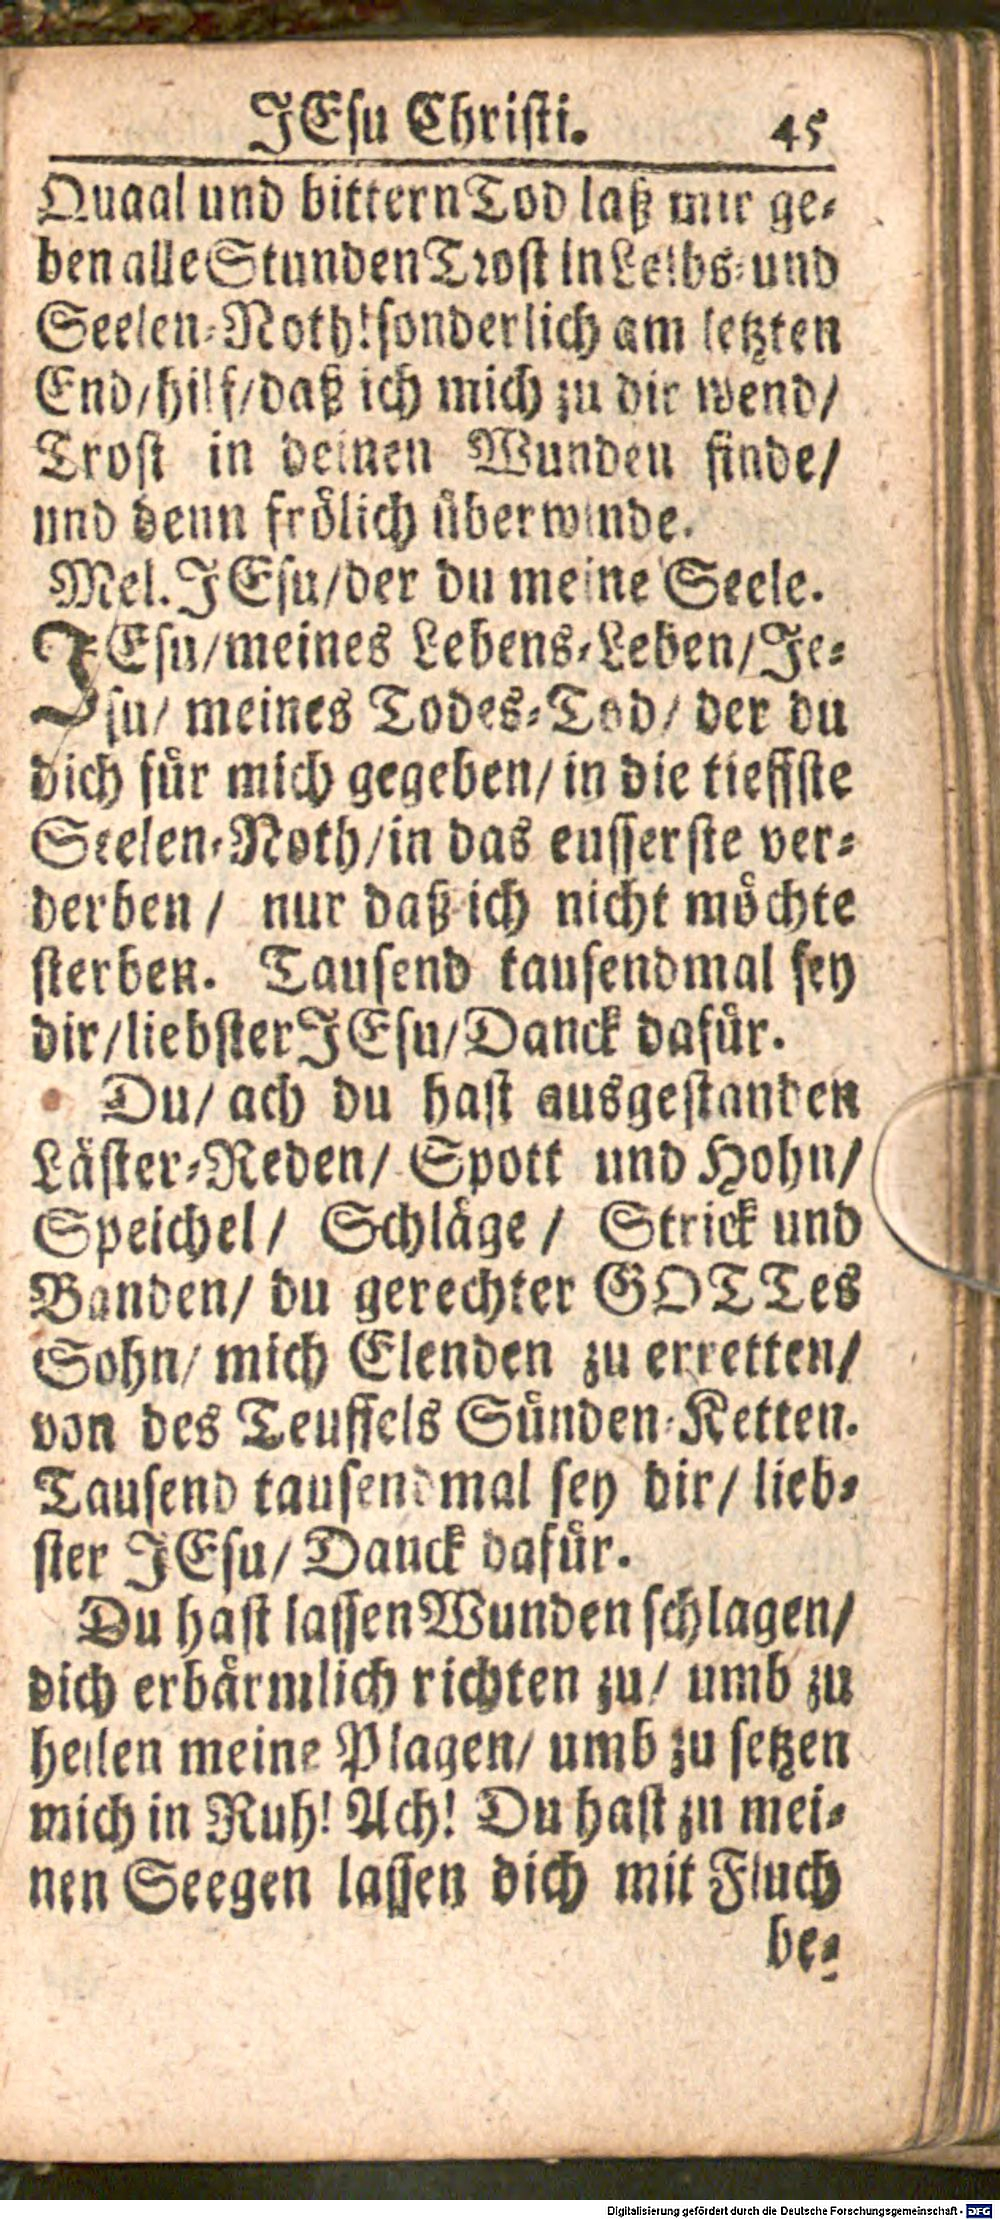 JEsu Christi. 45
Quaal und bittern Tod laß mir ge-
ben alle Stunden Trost in Leibs- und
Seelen-Noth! sonderlich am letzten
End/ hilf/ daß ich mich zu dir wend/
Trost in deinen Wunden finde/
und denn frölich überwinde.
Mel. JEsu/ der du meine Seele.
JEsu/ meines Lebens-Leben/ Je-
su/ meines Todes-Tod/ der du
dich für mich gegeben/ in die tieffste
Seelen-Noth/ in das eusserste ver-
derben/ nur daß ich nicht möchte
sterben. Tausend tausendmal sey
dir/ liebster JEsu/ Danck dafür.
Du/ ach du hast ausgestanden
Läster-Reden/ Spott und Hohn/
Speichel/ Schläge/ Strick und
Banden/ du gerechter GOTTes
Sohn/ mich Elenden zu erretten/
von des Teuffels Sünden-Ketten.
Tausend tausendmal sey dir/ lieb-
ster JEsu/ Danck dafür.
Du hast lassen Wunden schlagen/
dich erbärmlich richten zu/ umb zu
heilen meine Plagen/ umb zu setzen
mich in Ruh! Ach! Du hast zu mei-
nen Seegen lassen dich mit Fluch
be-
Digitalisierung gefördert durch die Deutsche Forschungsgemeinschaft - DFG